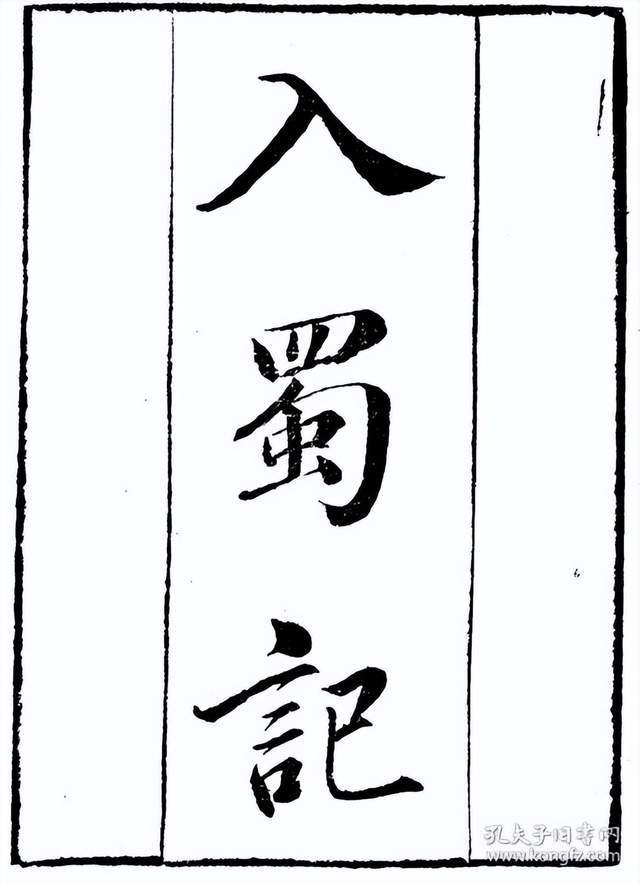 入蜀記
孔夫子旧书网
www.kongfz.com